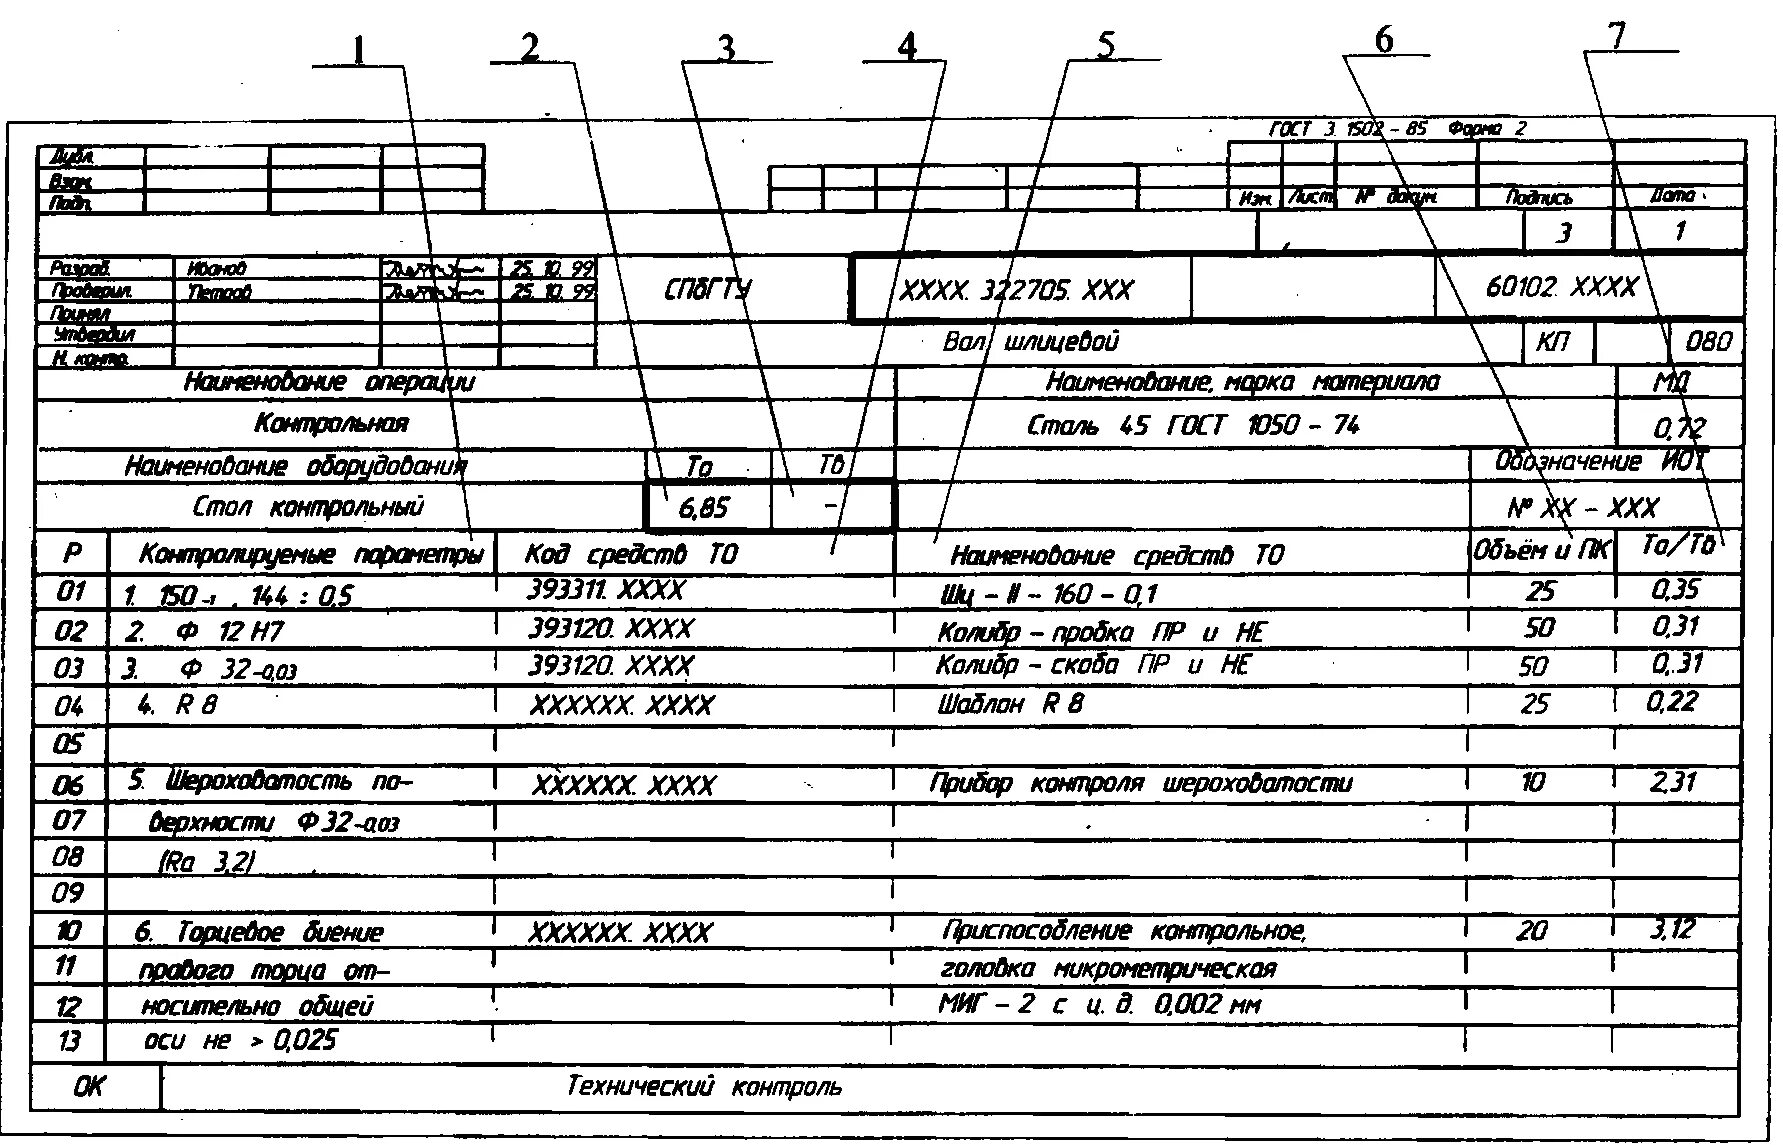 1 2 3 4 5 6 7
ГОСТ 3. 1502-85 Форма 2
Дубл.
Взам.
Подп.
Изм. Лист № докум. Подпись Дата
3 1
Разраб. Иванов 25. 10. 99
Проверил. Петров 25. 10. 99
Принял
Утвердил
Н. контр.
СПбГТУ XXXX. 322705. XXX 60102. XXXX
Вал шлицевой КП 080
Наименование операции Наименование, марка материала МД
Контрольная Сталь 45 ГОСТ 1050-74 0,72
Наименование оборудования То Тв Обозначение ИОТ
Стол контрольный 6,85 - № XX-XXX
Р Контролируемые параметры Код средств ТО Наименование средств ТО Объём и ПК То/Тв
01 1. 150-1 , 144 : 0,5 393311. XXXX Шц-II-160-0,1 25 0,35
02 2. Ф 12 Н7 393120. XXXX Калибр-пробка ПР и НЕ 50 0,31
03 3. Ф 32-0,03 393120. XXXX Калибр-скоба ПР и НЕ 50 0,31
04 4. R 8 XXXXXX. XXXX Шаблон R 8 25 0,22
05
06 5. Шероховатость по- XXXXXX. XXXX Прибор контроля шероховатости 10 2,31
07 верхности Ф32-0,03
08 (Ra 3,2)
09
10 6. Торцевое биение XXXXXX. XXXX Приспособление контрольное, 20 3,12
11 правого торца от- головка микрометрическая
12 носительно общей МИГ-2 с ц. д. 0,002 мм
13 оси не > 0,025
ОК Технический контроль